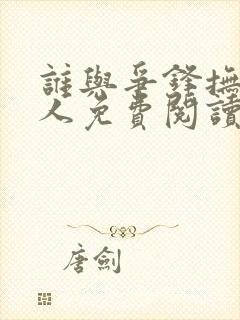 誰與爭鋒撫
人免費閱讀
唐劍